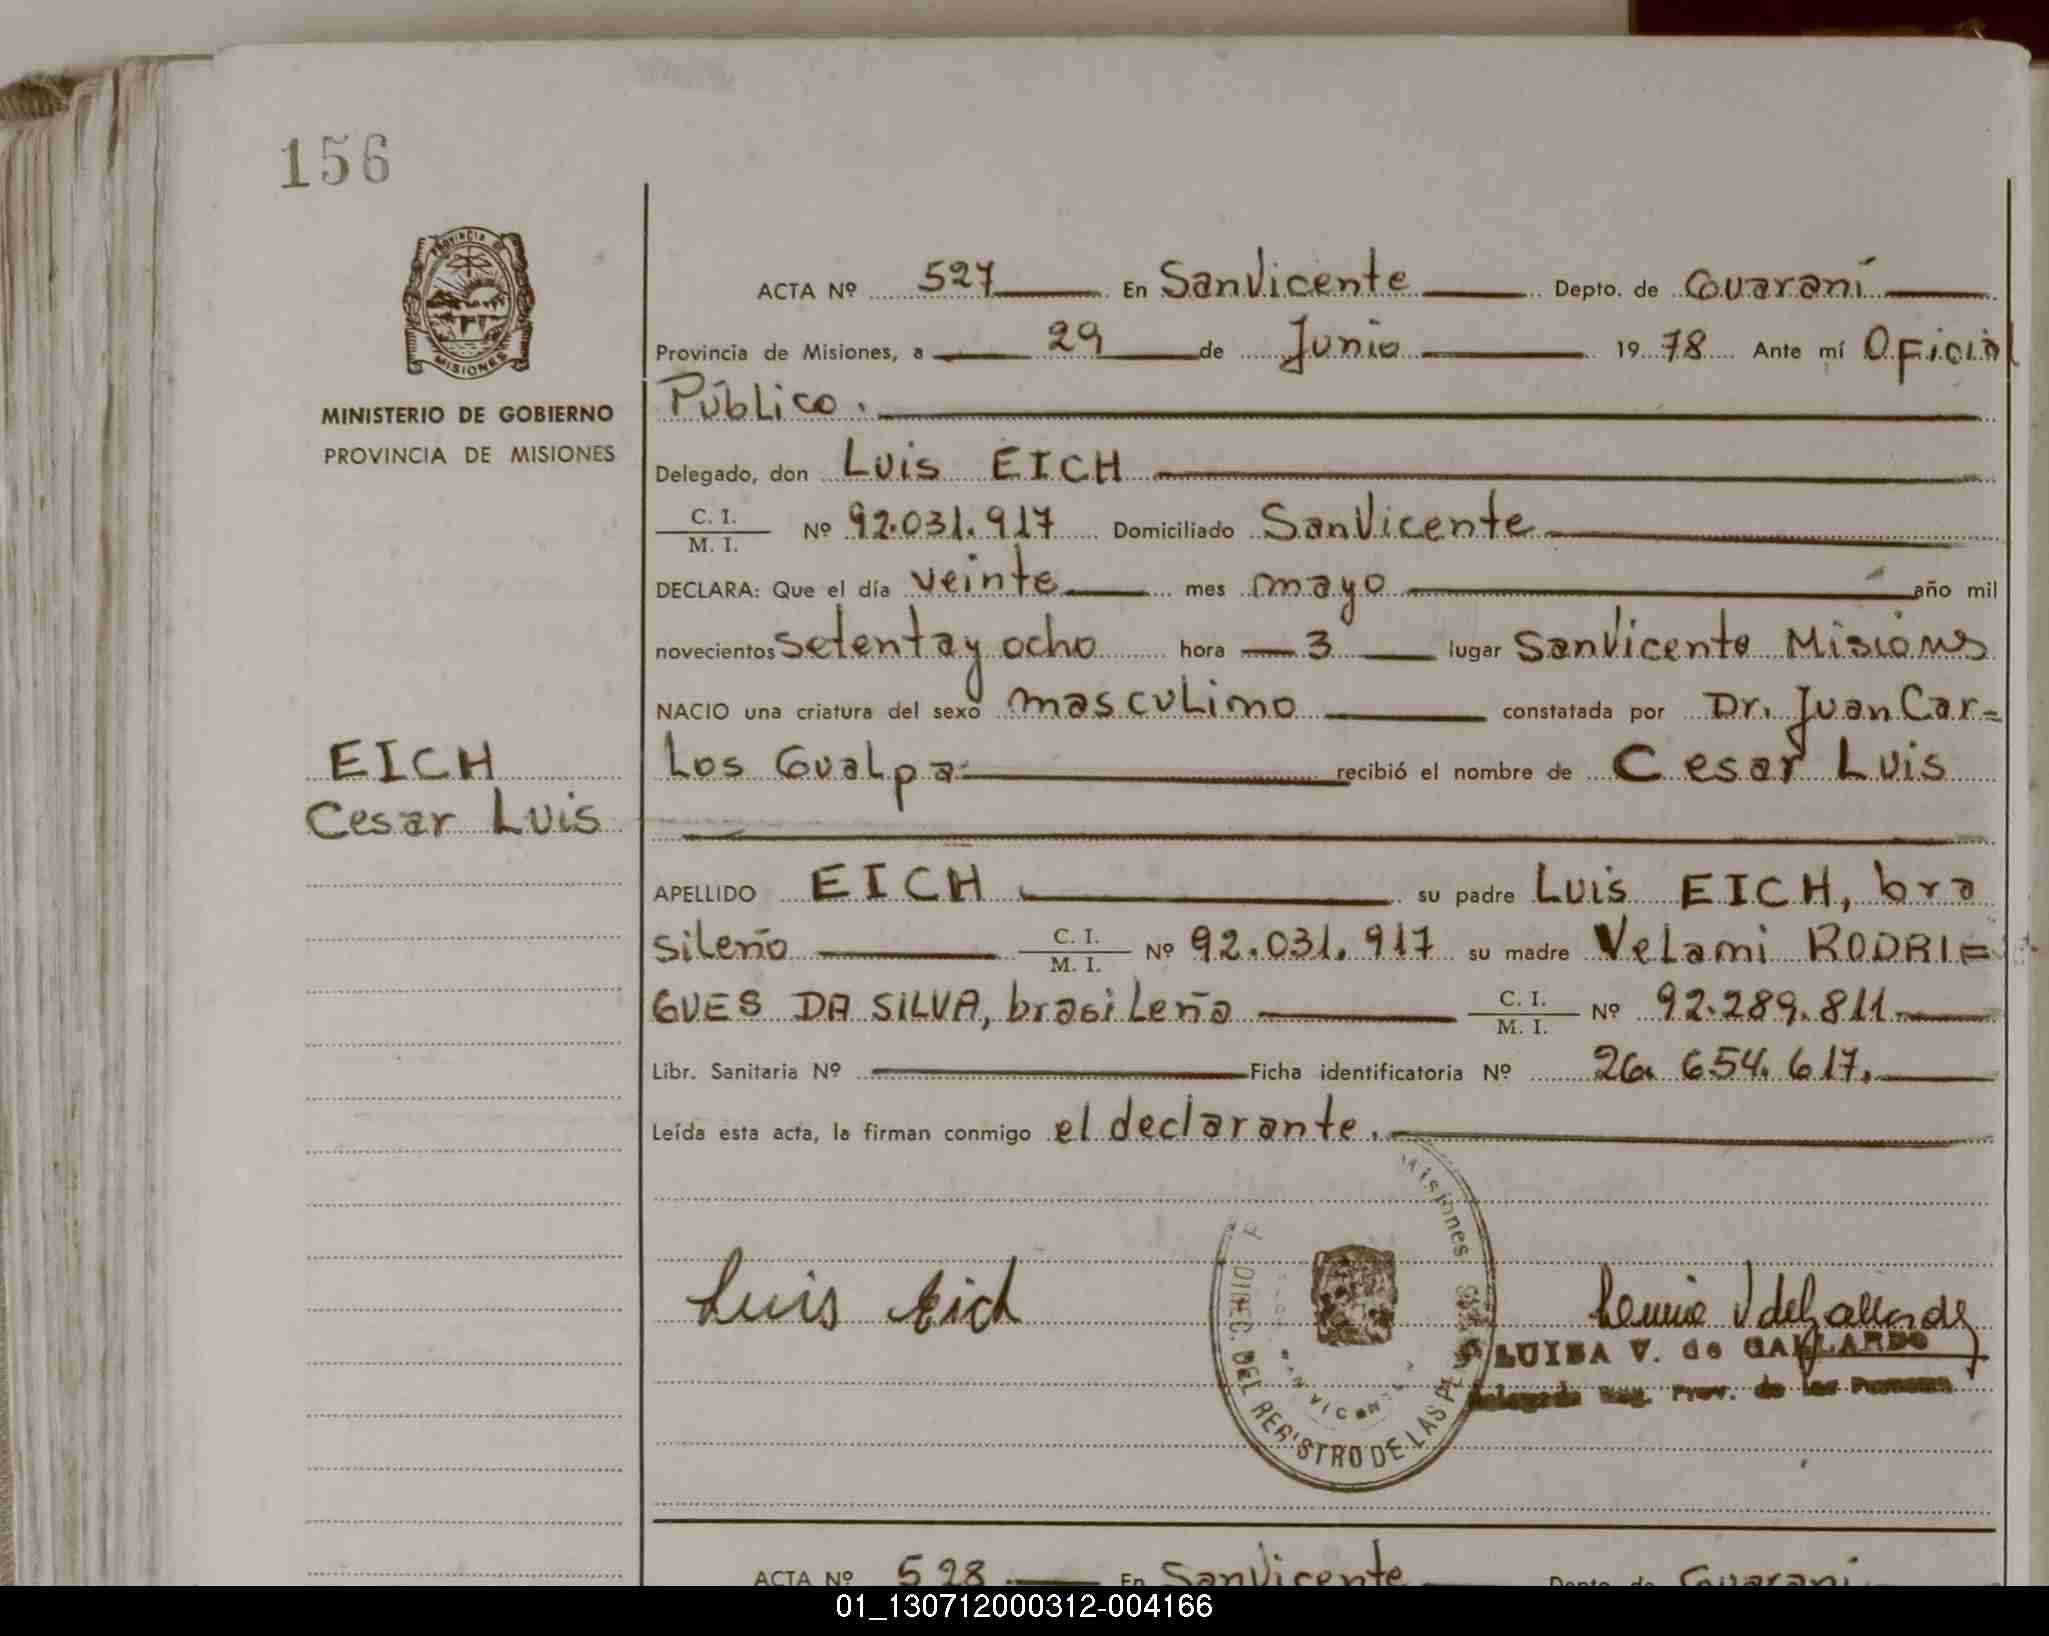 156
PROVINCIA DE
MISIONES
MINISTERIO DE GOBIERNO
PROVINCIA DE MISIONES
EICH
Cesar Luis
ACTA Nº 527 En San Vicente Depto. de Guaraní
Provincia de Misiones, a 29 de Junio 1978 Ante mí Oficial
Público.
Delegado, don Luis EICH
C. I.
M. I. Nº 92.031.917 Domiciliado San Vicente
DECLARA: Que el día veinte mes mayo año mil
novecientos setenta y ocho hora 3 lugar San Vicente Misiones
NACIO una criatura del sexo masculino constatada por Dr. Juan Car=
los Gualpa recibió el nombre de Cesar Luis
APELLIDO EICH su padre Luis EICH, bra
sileño C. I.
M. I. Nº 92.031.917 su madre Velami RODRI=
GUES DA SILVA, brasileña C. I.
M. I. Nº 92.289.811
Libr. Sanitaria Nº Ficha identificatoria Nº 26.654.617.
Leída esta acta, la firman conmigo el declarante.
Misiones
DIREC. DEL REGISTRO DE LAS
SAN VICENTE
Luis Eich
V de Gallardo
LUISA V. de GALLARDO
Delegada Reg. Prov. de las Personas
ACTA Nº 528 En San Vicente Depto. de Guaraní
01_130712000312-004166